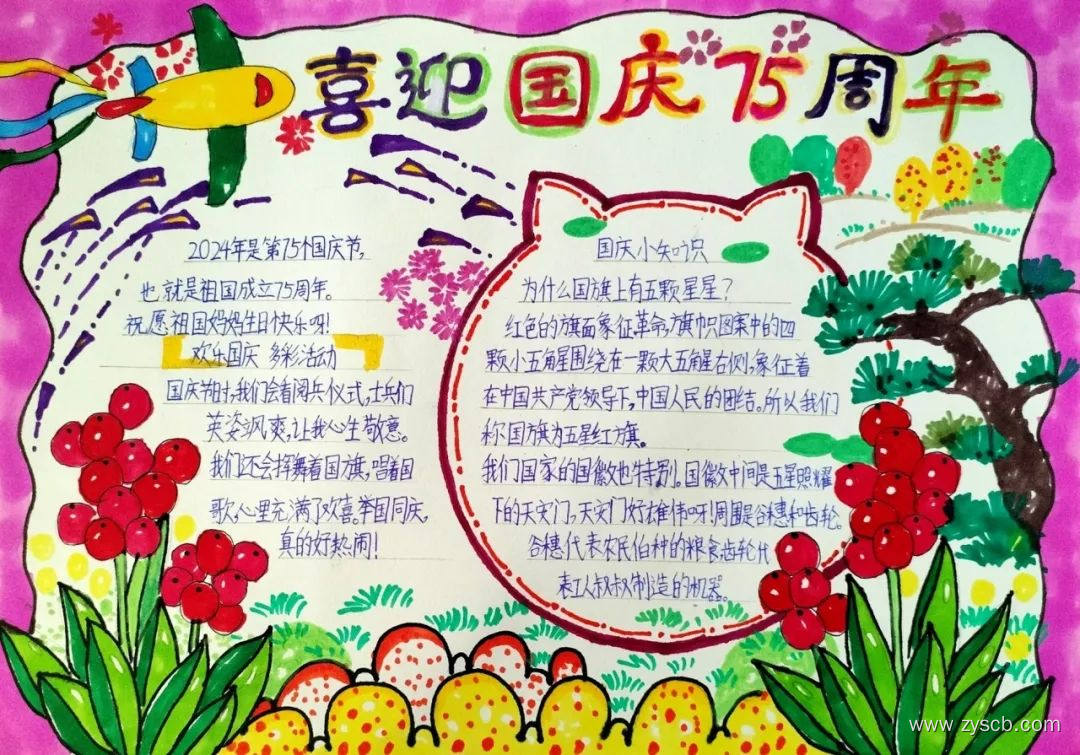 喜迎国庆75周年
2024年是第75个国庆节,
也就是祖国成立75周年。
祝愿祖国妈妈生日快乐呀!
欢乐国庆 多彩活动
国庆节时,我们会看阅兵仪式,士兵们
英姿飒爽,让我心生敬意。
我们还会挥舞着国旗,唱着国
歌,心里充满了欢喜。举国同庆,
真的好热闹!
国庆小知识
为什么国旗上有五颗星星?
红色的旗面象征革命,旗帜图案中的四
颗小五角星围绕在一颗大五角星右侧,象征着
在中国共产党领导下,中国人民的团结。所以我们
称国旗为五星红旗。
我们国家的国徽也特别。国徽中间是五星照耀
下的天安门,天安门好雄伟呀!周围是谷穗和齿轮。
谷穗代表农民伯种的粮食齿轮代
表工人叔叔制造的机器。
www.zyscb.com